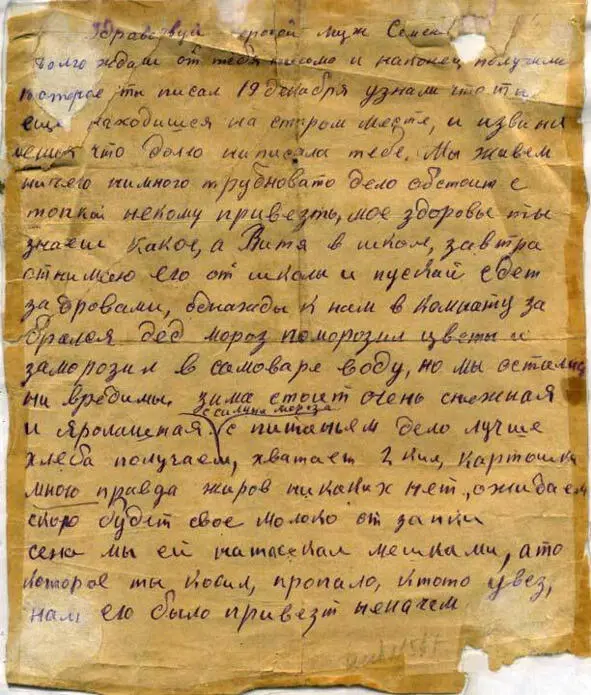 Здравствуй дорогой муж Семен
Долго ждали от тебя письмо и наконец получили
которое ты писал 19 декабря узнали что ты
еще находишся на старом месте, и извини
меня что долго ниписала тебе. Мы живем
ничего нимного трудновато дело обстоит с
топкой некому привезть, мое здоровье ты
знаеш какое, а Витя в школе, завтра
отнимаю его от школы и пускай едет
за дровами, однажды к нам в комнату за
брался дед мороз поморозил цветы и
заморозил в самоваре воду, но мы остались
ни вредимы. зима стоит очень снежная
и с питаньем дело лучше
хлеба получаем, хватает 2 кил, картошки
много правда жиров никаких нет, ожидаем
скоро будет свое молоко от
сена мы ей натаскали мешками, а то
которое ты косил, пропало, ктото увез,
нам его было привезт неначем